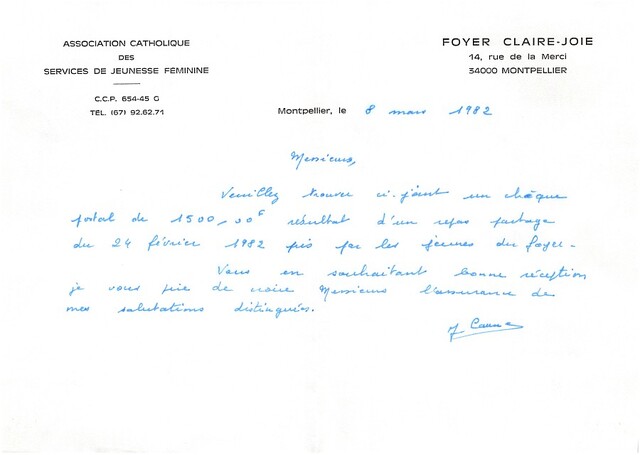 ASSOCIATION CATHOLIQUE
DES
SERVICES DE JEUNESSE FÉMININE
C.C.P. 654-45 G
TEL. (67) 92.62.71
FOYER CLAIRE-JOIE
14, rue de la Merci
34000 MONTPELLIER
Montpellier, le 8 mars 1982
Messieurs,
Veuillez trouver ci-joint un chèque
postal de 1500,00F résultat d'un repas partage
du 24 février 1982 pris par les jeunes du foyer.
Vous en souhaitant bonne réception
je vous prie de croire Messieurs l'assurance de
mes salutations distinguées.